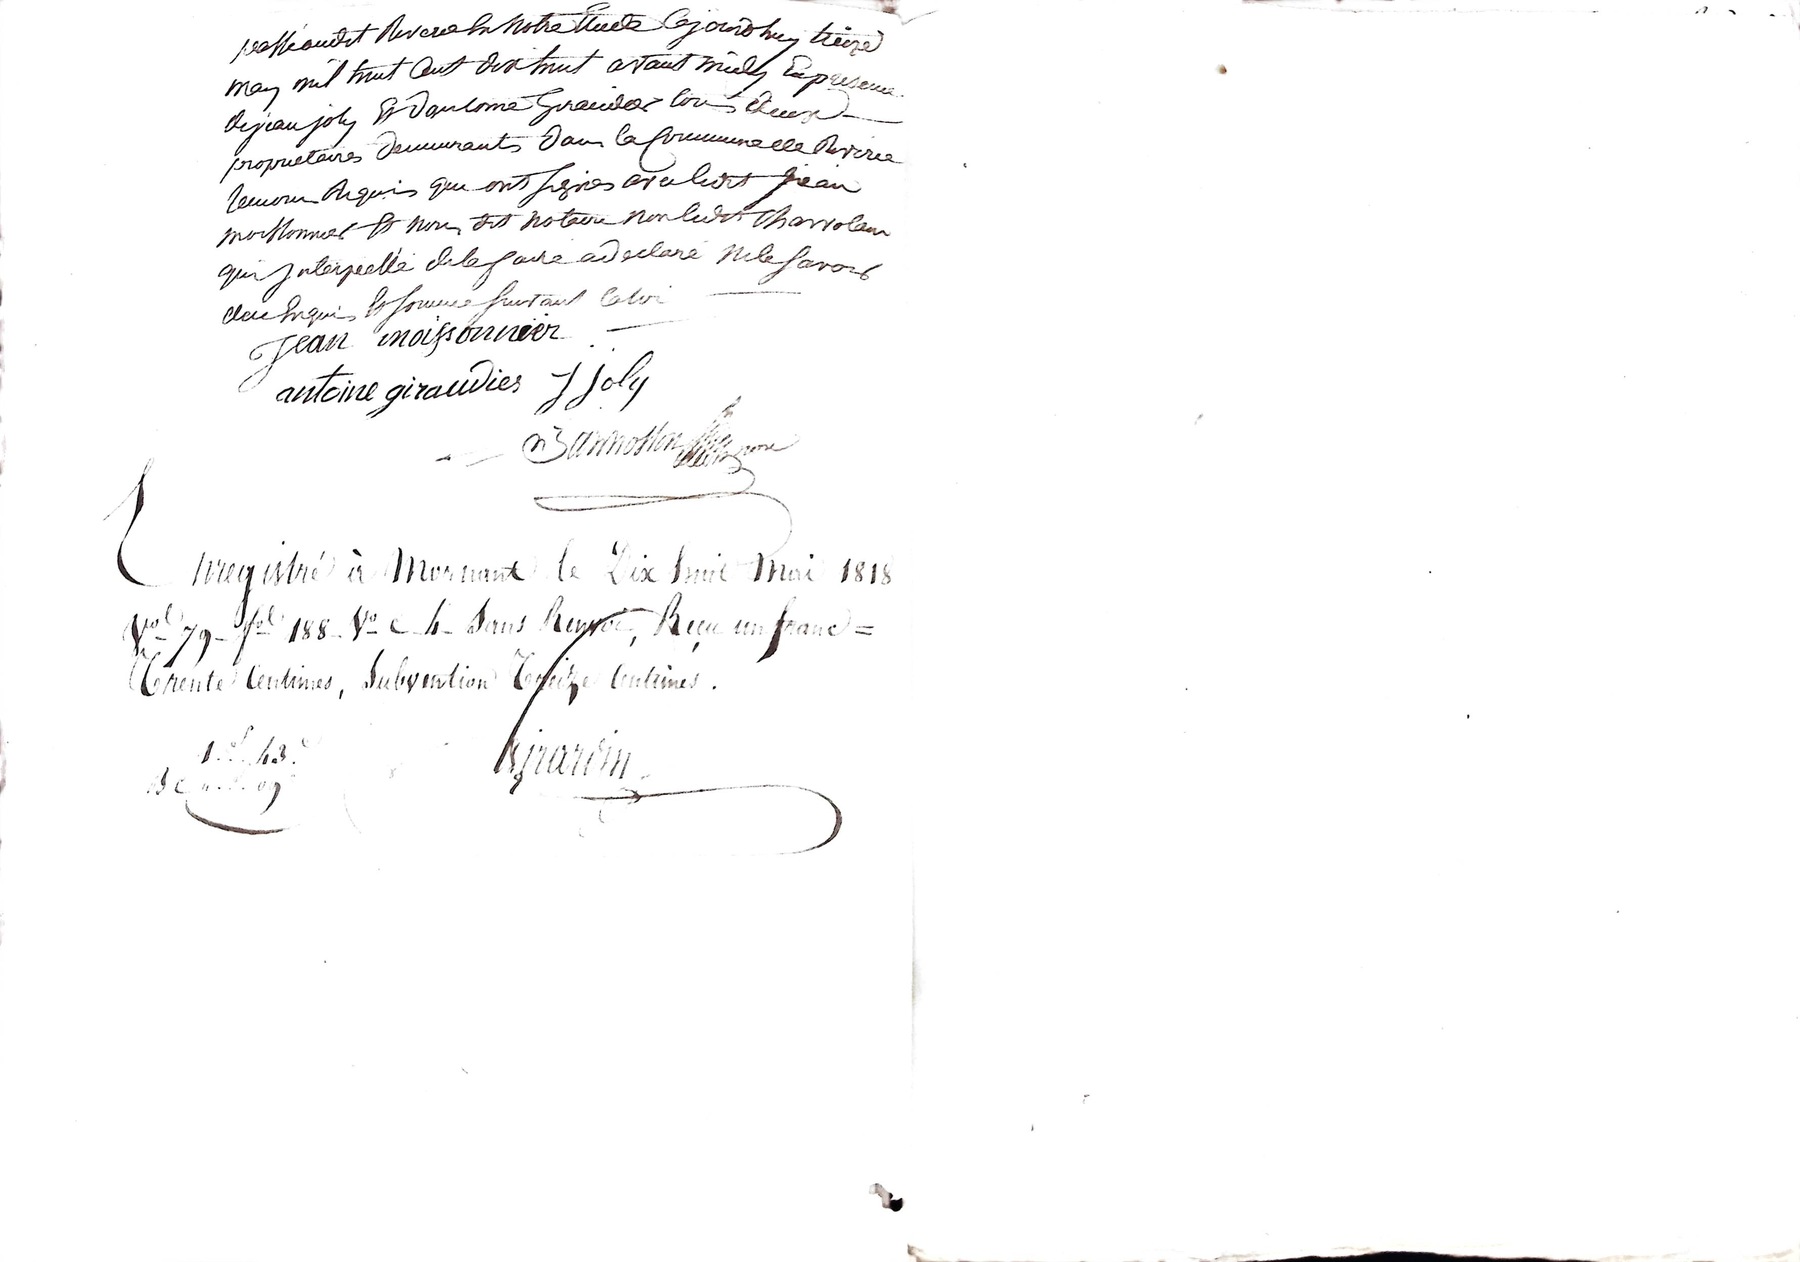 passé audit Riverie En Notre Etude Cejourdhuy treize
may mil huit Cent dix huit avant midy En presence
de jean joly Et d'antoine Giraudier tous deux
proprietaires demeurants dans la Commune de Riverie
temoins Requis qui ont signés avec ledit jean
moissonnier Et nous dit notaire non ledit Charvolin
qui Interpellé de le faire a declaré ne le savoir
de ce Enquis Et sommé suivant la loi
Jean moissonnier
antoine giraudier J Joly
Enregistré à Mornant le Dix huit Mai 1818
Vol 79 fol 188 Vo C 4 Sans Renvoi, Reçu un franc =
Trente Centimes, Subvention Treize Centimes.
1f. 43c
Girardin